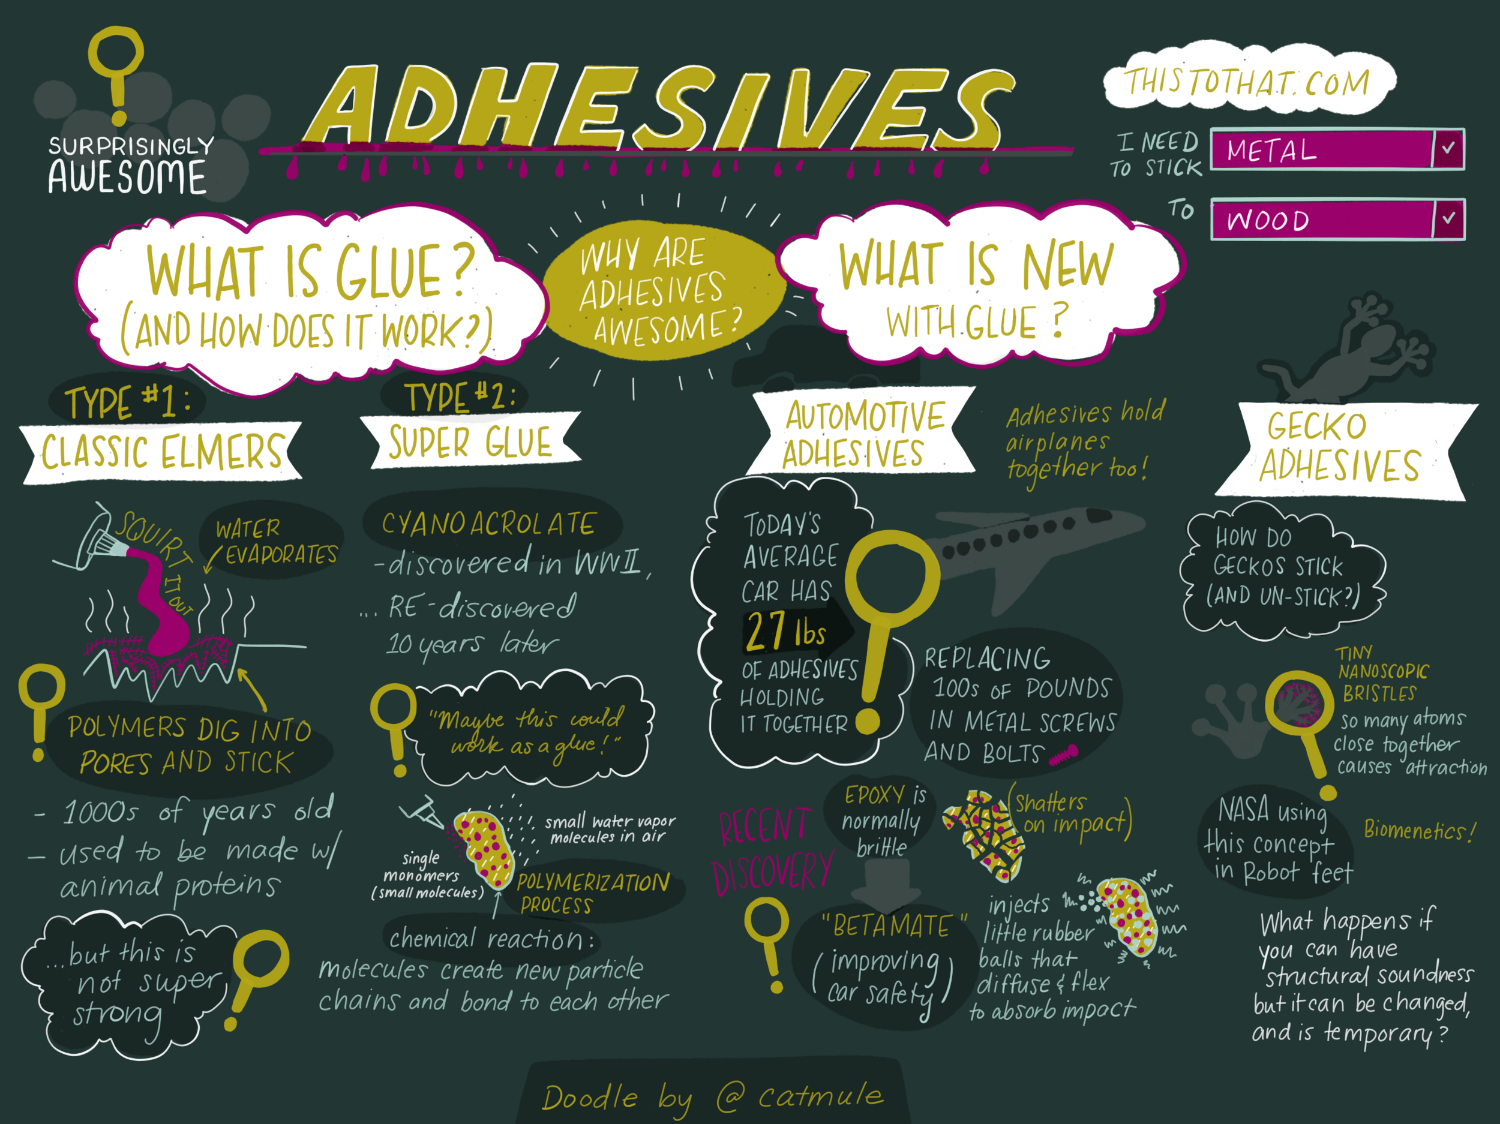 SURPRISINGLY
AWESOME
ADHESIVES
THISTOTHAT.COM
I NEED
TO STICK
METAL
TO
WOOD
WHAT IS GLUE?
(AND HOW DOES IT WORK?)
WHY ARE
ADHESIVES
AWESOME?
WHAT IS NEW
WITH GLUE?
TYPE #1:
CLASSIC ELMERS
SQUIRT IT OUT
WATER
EVAPORATES
POLYMERS DIG INTO
PORES AND STICK
- 1000s of years old
- used to be made w/
animal proteins
...but this is
not super
strong
TYPE #2:
SUPER GLUE
CYANOACROLATE
-discovered in WWII,
... RE-discovered
10 years later
"Maybe this could
work as a glue!"
small water vapor
molecules in air
single
monomers
(small molecules)
POLYMERIZATION
PROCESS
chemical reaction:
molecules create new particle
chains and bond to each other
AUTOMOTIVE
ADHESIVES
Adhesives hold
airplanes
together too!
TODAY'S
AVERAGE
CAR HAS
27 lbs
OF ADHESIVES
HOLDING
IT TOGETHER
REPLACING
100s OF POUNDS
IN METAL SCREWS
AND BOLTS
RECENT
DISCOVERY
EPOXY is
normally
brittle
(Shatters
on impact)
"BETAMATE"
(improving
car safety)
injects
little rubber
balls that
diffuse & flex
to absorb impact
GECKO
ADHESIVES
HOW DO
GECKOS STICK
(AND UN-STICK?)
TINY
NANOSCOPIC
BRISTLES
so many atoms
close together
causes attraction
NASA using
this concept
in Robot feet
Biomenetics!
What happens if
you can have
structural soundness
but it can be changed,
and is temporary?
Doodle by @catmule